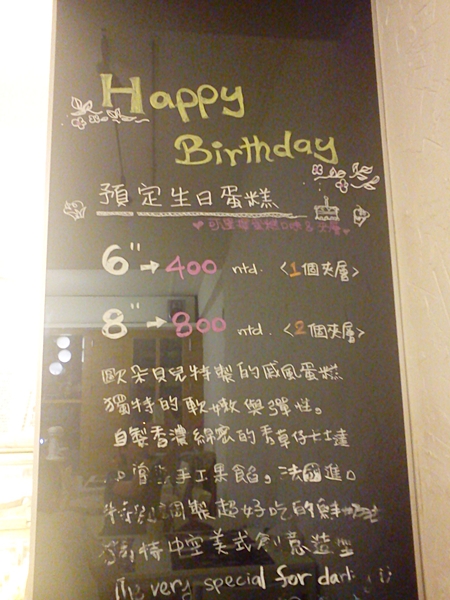 Happy
Birthday
預定生日蛋糕
♥可選擇蛋糕口味&夾層♥
6" → 400 ntd. <1個夾層>
8" → 800 ntd. <2個夾層>
歐朵貝兒特製的戚風蛋糕
獨特的軟嫩與彈性。
自製香濃綿密的香草仔卡士達
手工果餡。法國進口
特別調製超好吃的鮮
獨特中空美式創意造型
very special for